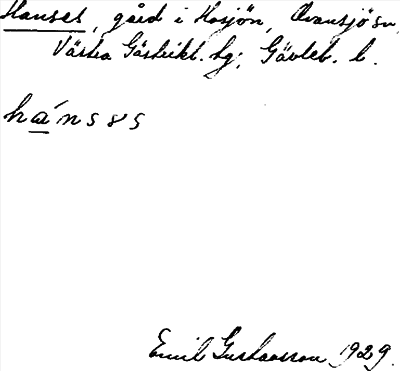 Hanses, gård i Hosjön, Ovansjö sn,
Västra Gästrikl. hg; Gävleb. l.
hánsəs
Emil Gustavsson 1929.